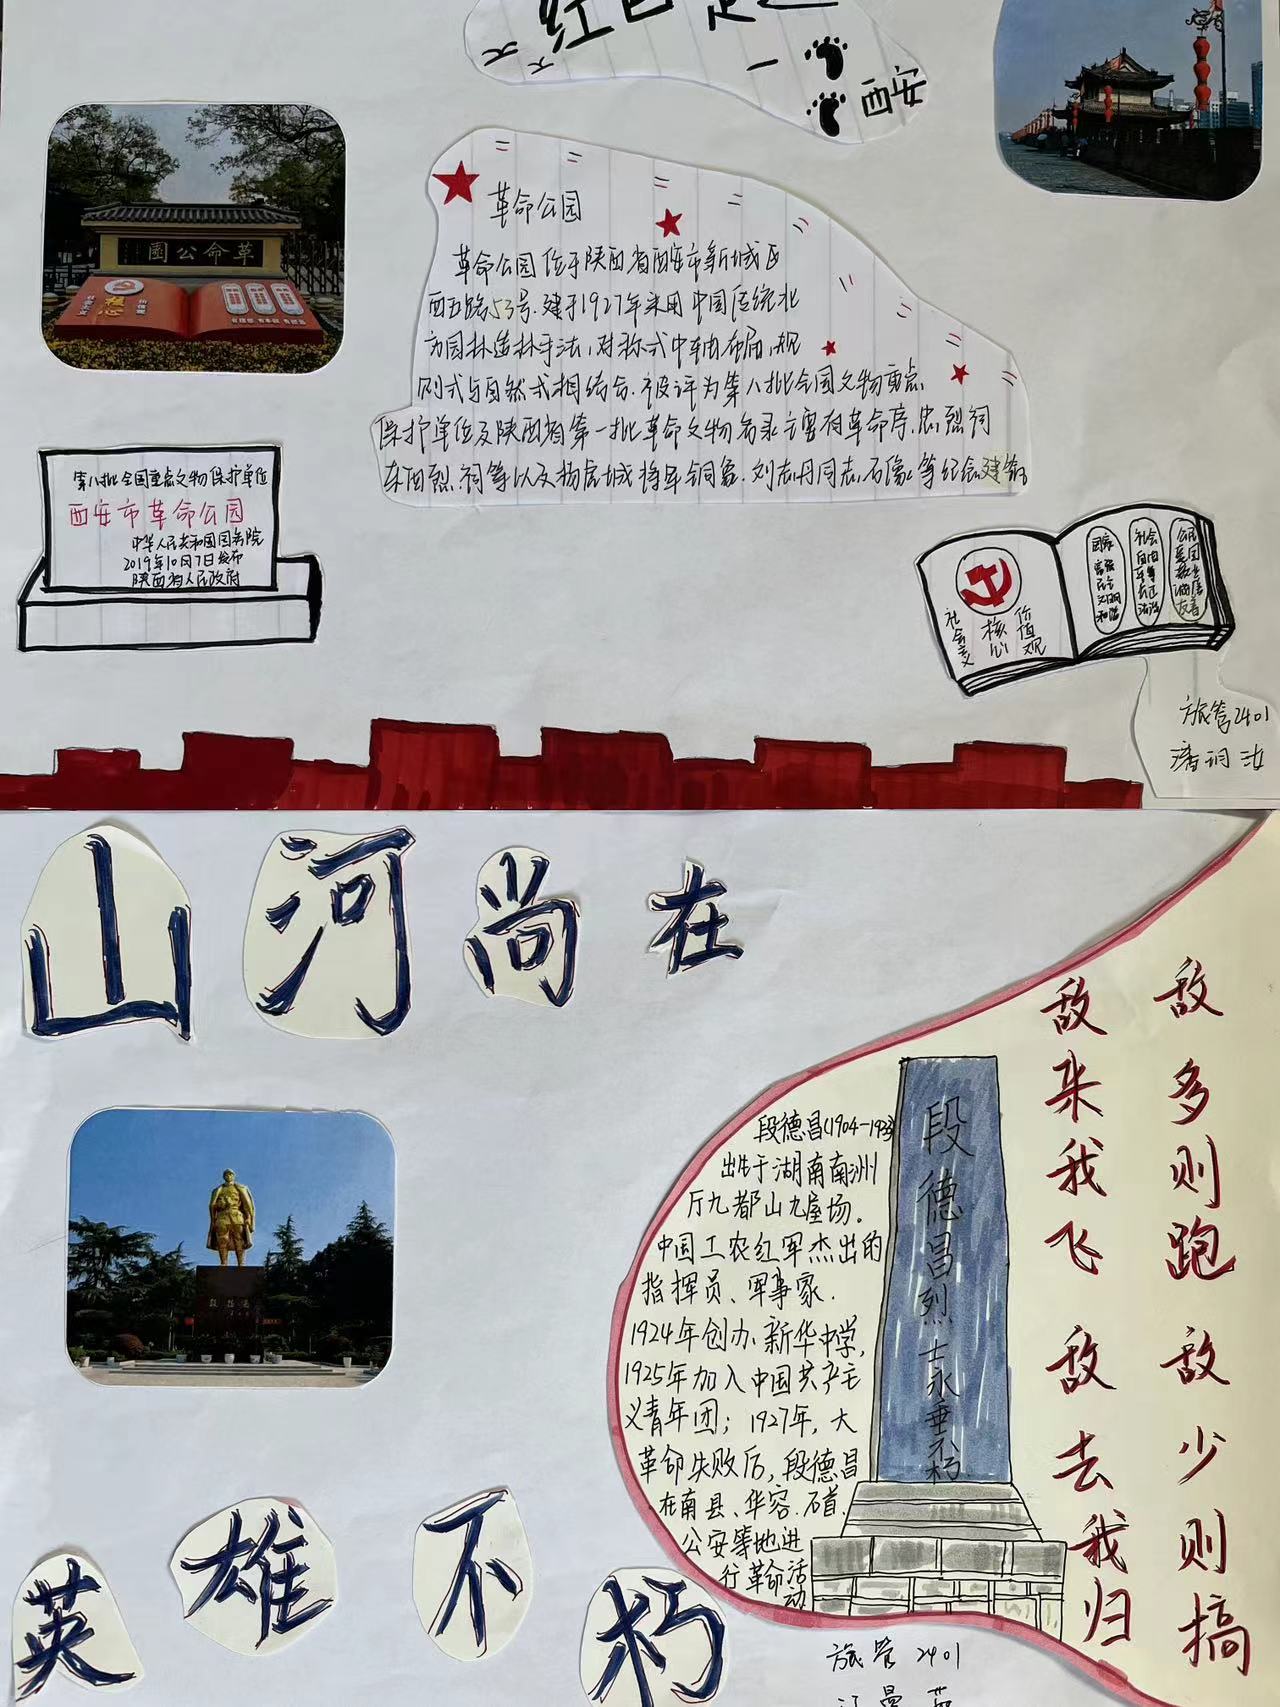 西安
革命公园
革命公园位于陕西省西安市新城区
西五路53号.建于1927年采用中国传统北
方园林造林手法,对称式中轴布局,规
则式与自然式相结合.被评为第八批全国文物重点
保护单位及陕西省第一批革命文物名录主要有革命亭.忠烈祠
东西烈祠等以及杨虎城将军铜象.刘志丹同志石像等纪念建筑
革命公園
社会主义
核心
价值观
第八批全国重点文物保护单位
西安市革命公园
中华人民共和国国务院
2019年10月7日发布
陕西省人民政府
社会主义
核心
价值观
国家
富强
民主
文明
和谐
社会
自由
平等
公正
法治
公民
爱国
敬业
诚信
友善
旅管2401
山河尚在
敌多则跑敌少则搞
敌来我飞敌去我归
段德昌(1904-1933)
出生于湖南南洲
厅九都山九屋场。
中国工农红军杰出的
指挥员、军事家.
1924年创办新华中学,
1925年加入中国共产主
义青年团;1927年,大
革命失败后,段德昌
在南县、华容.石首、
公安等地进
行革命活
动
段德昌烈士永垂不朽
段德昌
英雄不朽
旅管2401